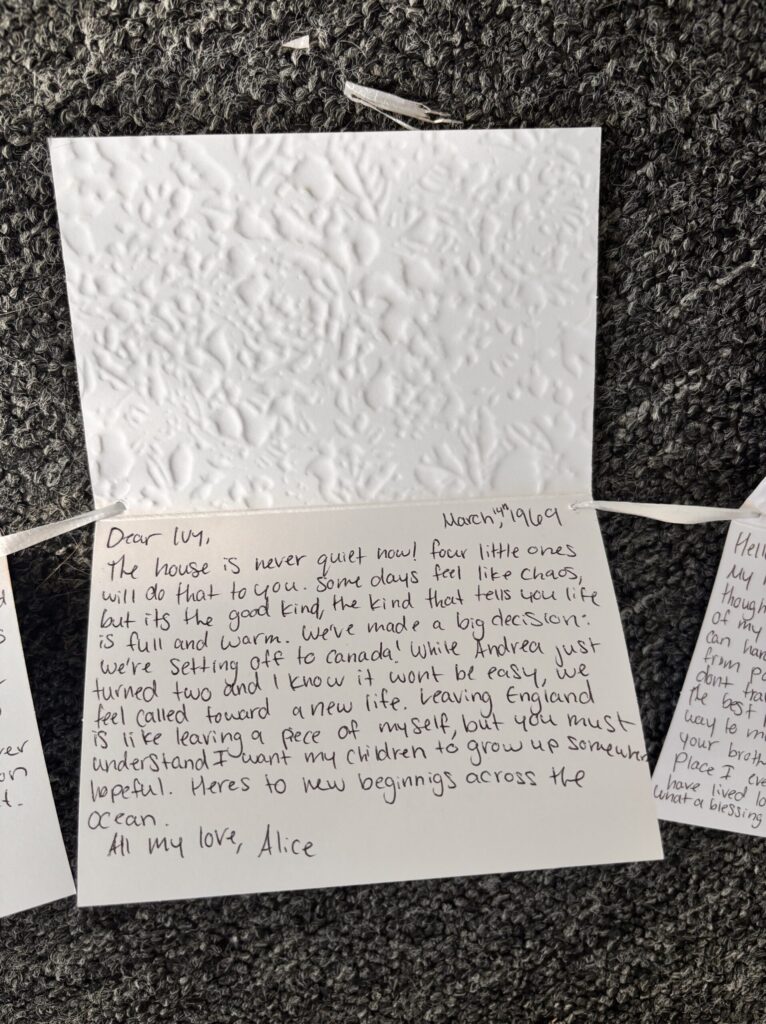 Dear Ivy,
March, 14th 1969
The house is never quiet now! four little ones
will do that to you. Some days feel like chaos,
but its the good kind, the kind that tells you life
is full and warm. We've made a big decision:
we're setting off to Canada! While Andrea just
turned two and I know it wont be easy, we
feel called toward a new life. Leaving England
is like leaving a piece of myself, but you must
understand I want my children to grow up somewhere
hopeful. Heres to new beginnigs across the
ocean.
All my love, Alice
My
though
of my
can
from
dont
the best
way to
your broth
Place I
have lived
what a blessing